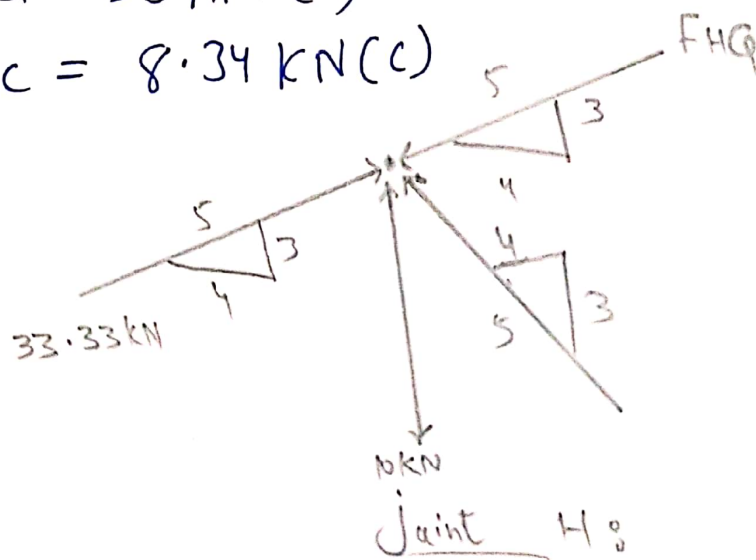 c = 8.34 KN(C)
FHG
5
3
4
5
3
4
4
3
5
33.33kN
10KN
Jaint H: